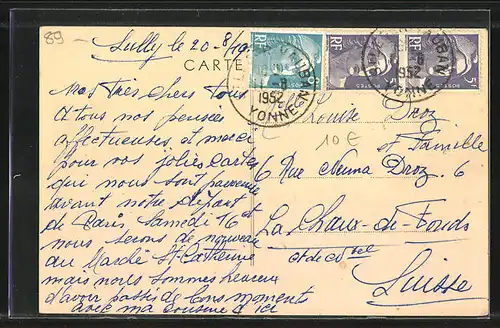 89
Sully le 20-8/19
CARTE
RF
RF
RF
VAUBAN
1952
YONNE
VAUBAN
1952
YONNE
Mes Très chers Tous
à tous nos pensées
affectueuses et merci
pour vos jolies cartes
qui nous sont parvenues
avant notre départ
de Paris Samedi 16 et
nous serons de nouveau
au Marché Ste Catherine
mais nous sommes heureux
d'avoir passé de bons moments
avec ma cousine d'ici
Louise Droz
et Famille
10 €
6 Rue Numa Droz. 6
La Chaux-de-Fonds
Suisse